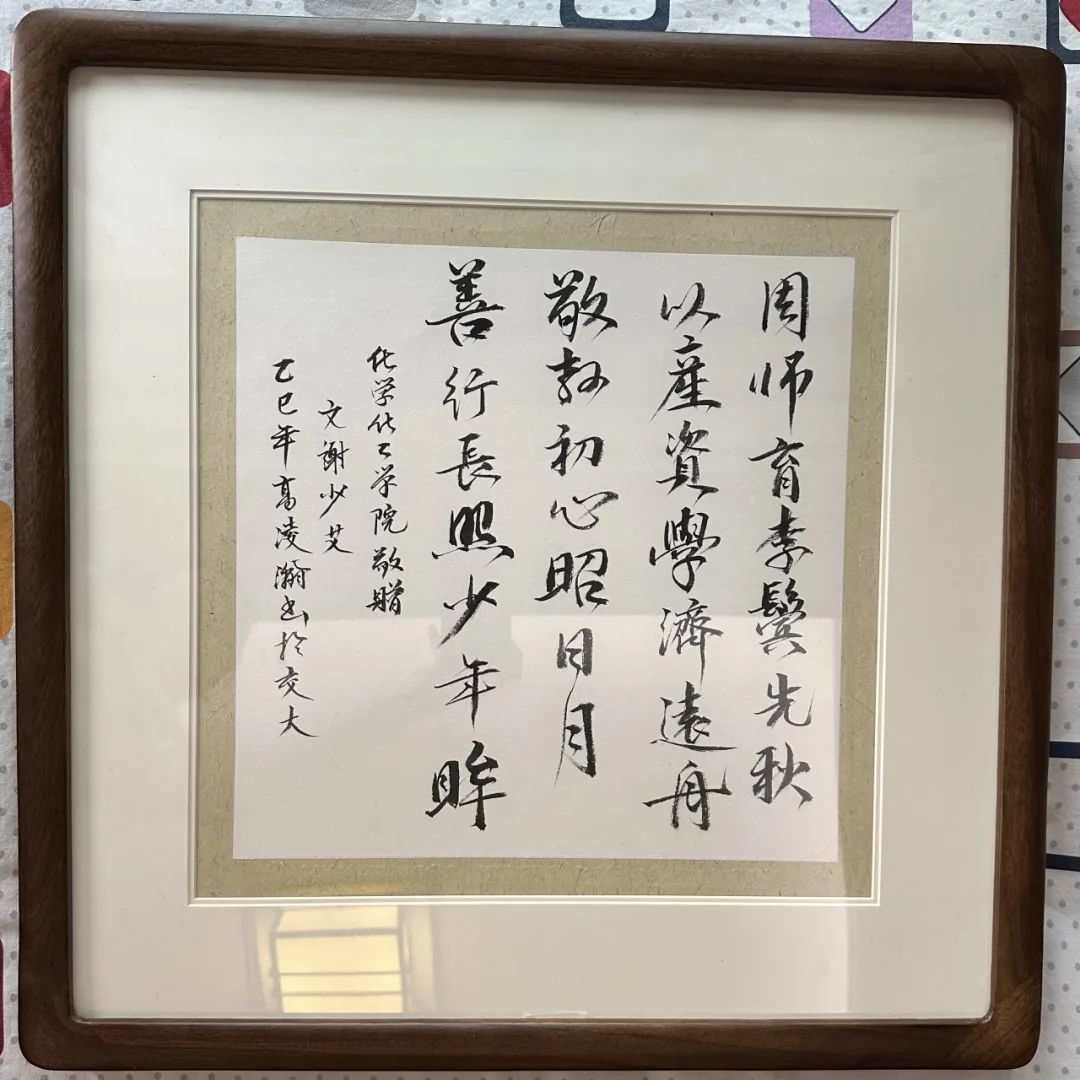 周师育李鬓先秋
以產資學濟遠舟
敬教初心昭日月
善行長照少年眸
化学化工学院敬贈
文謝少艾
乙巳年高淩瀚书於交大